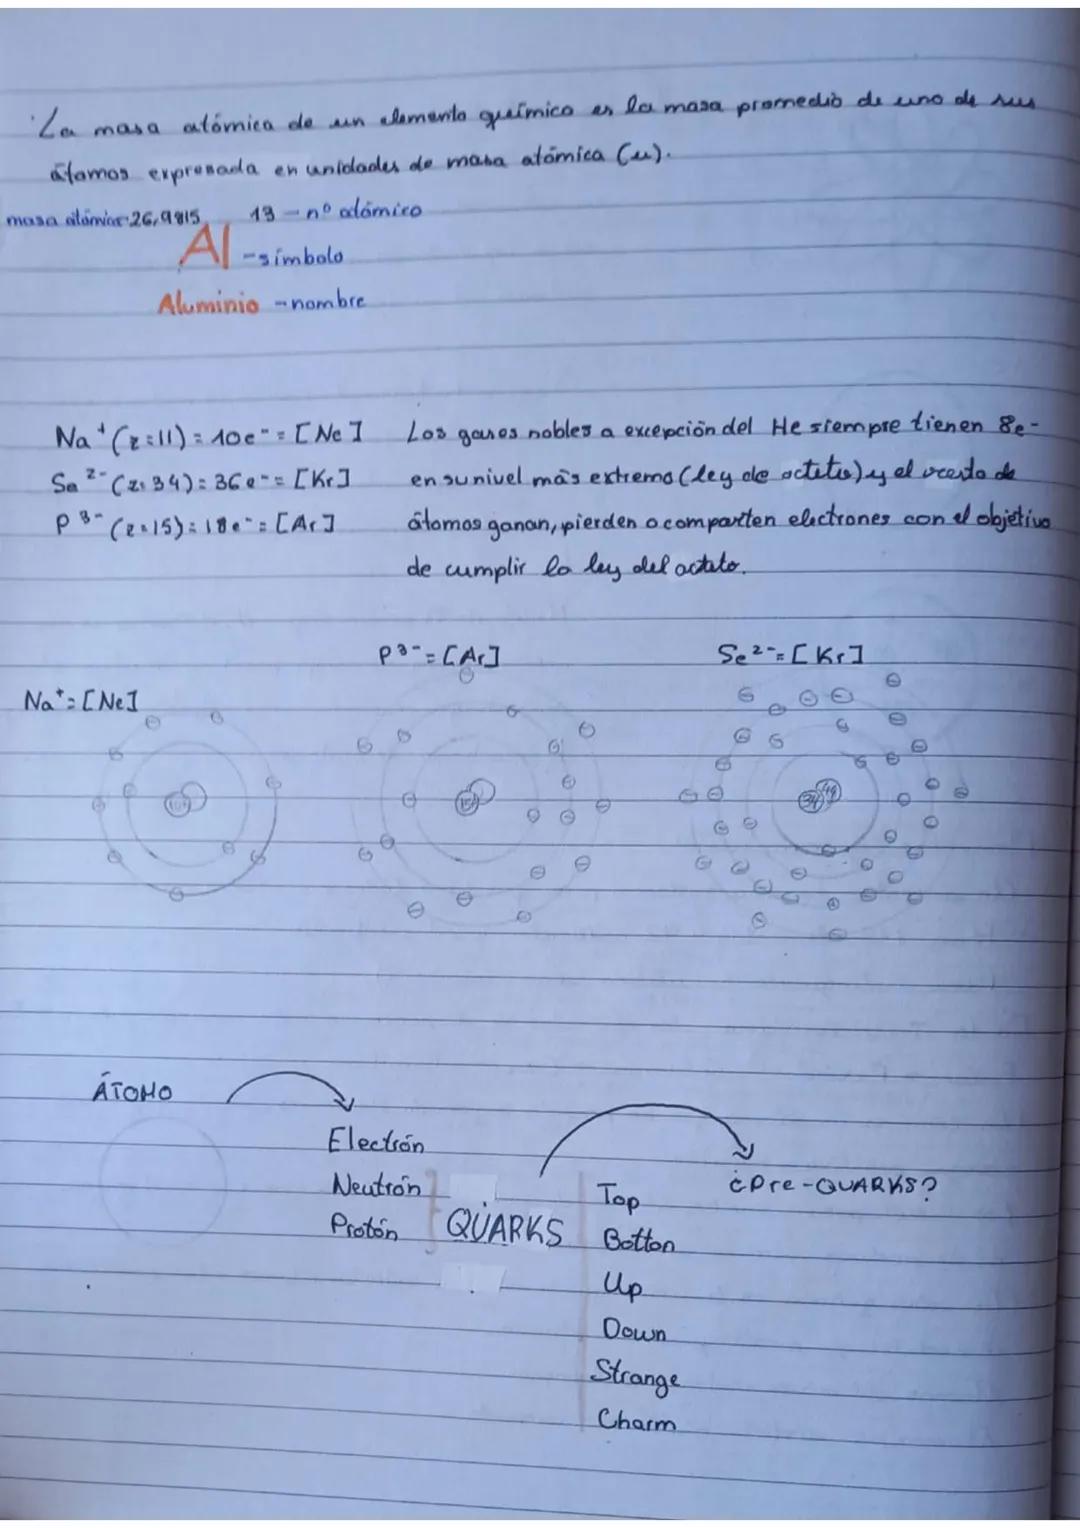 La masa atómica de un elemento químico es la masa promedio de uno de sus
átomos expresada en unidades de masa atómica (u).
masa atómica 26,9815 13 - nº atómico
Al - símbolo
Aluminio - nombre
Na⁺ (z=11) = 10e⁻ = [Ne] Los gases nobles a excepción del He siempre tienen 8e-
Se²⁻ (z=34) = 36e⁻ = [Kr] en su nivel más extremo (ley de octeto) y el resto de
P³⁻ (z=15) = 18e⁻ = [Ar] átomos ganan, pierden o comparten electrones con el objetivo
de cumplir la ley del octeto.
P³⁻ = [Ar] Se²⁻ = [Kr]
Na⁺ = [Ne]
34
ÁTOMO
Electrón
Neutrón
Protón
QUARKS
Top
Botton
Up
Down
Strange
Charm
¿Pre-QUARKS?